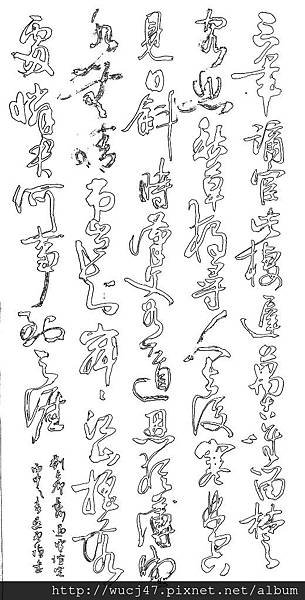 三年謫宦此棲遲萬古惟留楚
客悲秋草獨尋人去後寒林空
見日斜時漢文有道恩猶薄湘
水無情弔豈知寂〻江山搖落
處憐君何事到天涯
劉長卿
http://wucj47.pixnet.net/album